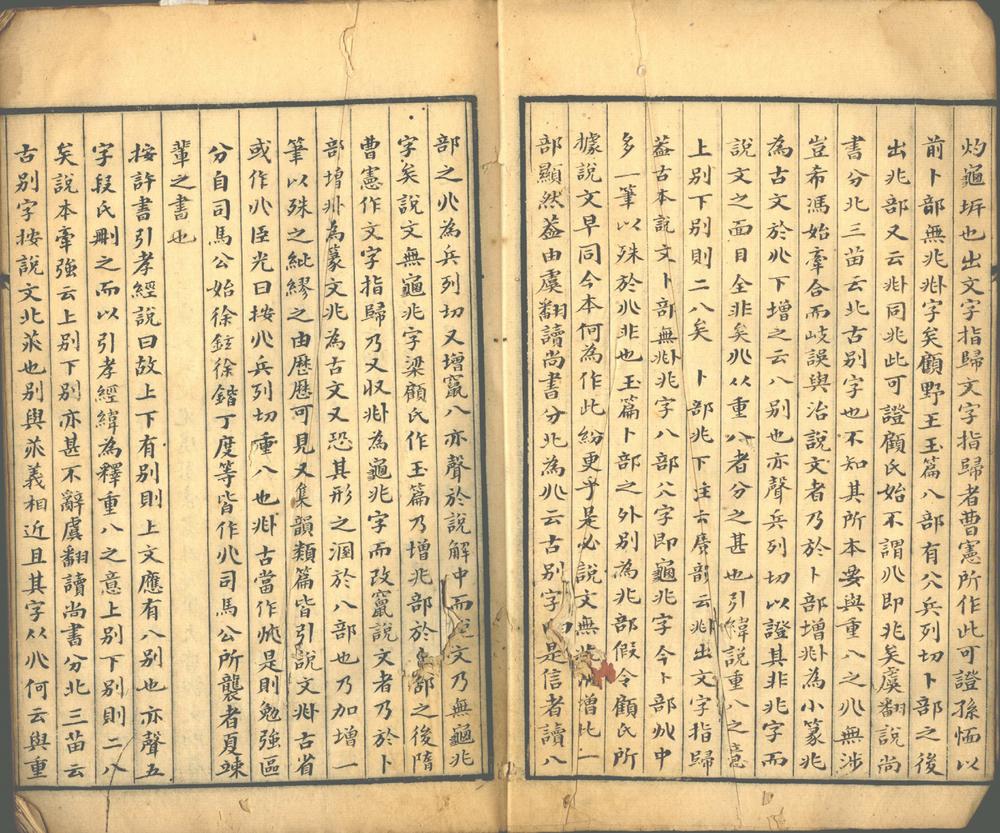 灼龜坼也出文字指歸文字指歸者曹憲所作此可證孫愐以
前卜部無兆𠧞字矣顧野王玉篇八部有𠔁兵列切卜部之後
出兆部又云𠧞同兆此可證顧氏始不謂𠔁即兆矣虞翻說尚
書分北三苗云北古別字也不知其所本要與重八之𠔁無涉
豈希馮始牽合而歧誤與治說文者乃於卜部增𠧞為小篆兆
為古文於𠔁下增之云八別也亦聲兵列切以證其非兆字而
說文之面目全非矣𠔁从重八者分之甚也引緯說重八之意
上別下別則二八矣 卜部兆下注云廣韵云𠧞出文字指歸
葢古本說文卜部無𠧞兆字八部𠔁字即龜兆字今卜部𠧞中
多一筆以殊於𠔁非也玉篇卜部之外別為兆部假令顧氏所
據說文早同今本何為作此紛更乎是必說文無兆增此一
部顯然葢由虞翻讀尚書分北為𠔁云古別字是信者讀八
部之𠔁為兵列切又增竄八亦聲於說解中而說文乃無龜兆
字矣說文無龜兆字梁顧氏作玉篇乃增兆部於卜部之後隋
曹憲作文字指歸乃又収𠧞為龜兆字而改竄說文者乃於卜
部增𠧞為篆文兆為古文又恐其形之溷於八部也乃加增一
筆以殊之紕繆之由歷歷可見又集韻類篇皆引說文𠧞古省
或作兆臣光曰按𠔁兵列切重八也𠧞古當作兆是則勉強區
分自司馬公始徐鉉徐鍇丁度等皆作兆司馬公所襲者夏竦
輩之書也
按許書引孝經說曰故上下有別則上文應有八別也亦聲五
字段氏刪之而以引孝經緯為釋重八之意上別下別則二八
矣說本牽強云上別下別亦甚不辭虞翻讀尚書分北三苗云
古別字按說文北𠦬也別與𠦬義相近且其字从𠔁何云與重